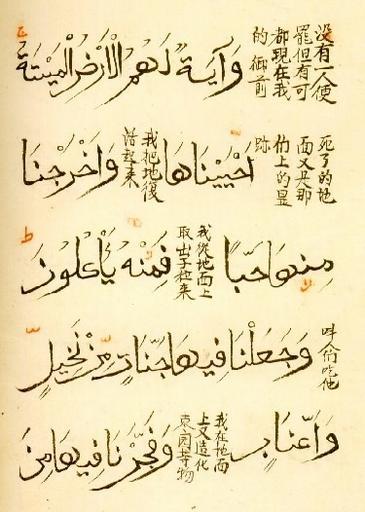 没有一人便
罷但有可
都現在我
的御前
وَآيَةٌ لَهُمُ الْأَرْضُ الْمَيْتَةُ
死了的地
面又是那
们上的显
跡
أَحْيَيْنَاهَا
我把地復
活起來
وَأَخْرَجْنَا
مِنْهَا حَبًّا
我從地面上
取出子粒来
فَمِنْهُ يَأْكُلُونَ
人们吃他
وَجَعَلْنَا فِيهَا جَنَّاتٍ مِنْ نَخِيلٍ
وَأَعْنَابٍ
我在地面
上又造化
园等物
وَفَجَّرْنَا فِيهَا مِنَ